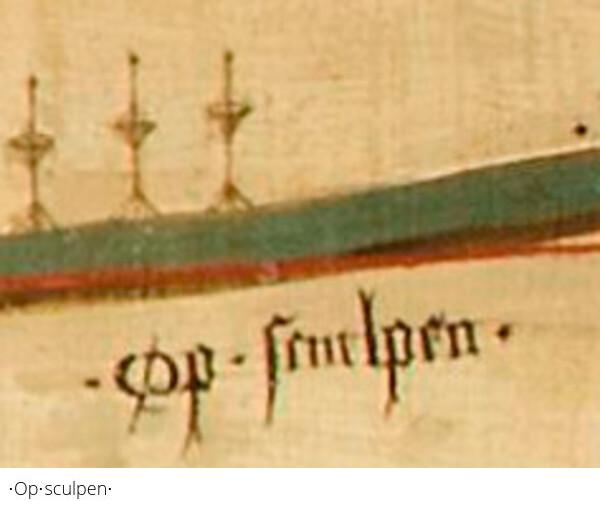 ·Op·ſculpen·
·Op·sculpen·